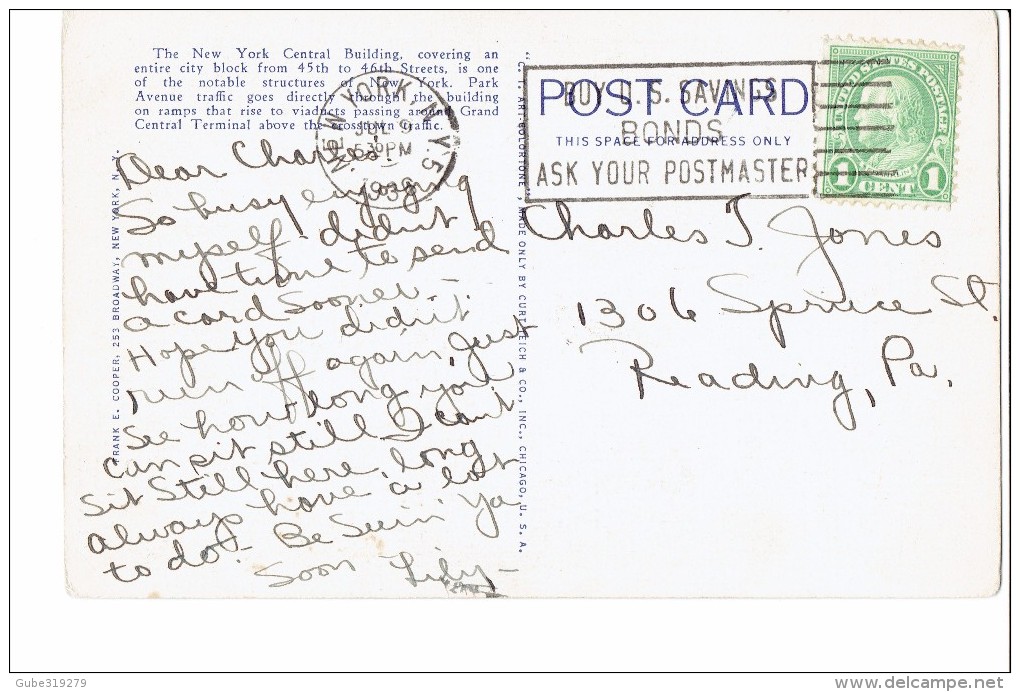 The New York Central Building, covering an
entire city block from 45th to 46th Streets, is one
of the notable structures of New York. Park
Avenue traffic goes directly through the building
on ramps that rise to viaducts passing around Grand
Central Terminal above the crosstown traffic.
Dear Charles:
So busy enjoying
myself didn't
have time to send
a card sooner -
Hope you didn't
run off again, Just
see how long you
can sit still I can't
sit still here, long
always have a lot
to do - Be Seein' Ya
Soon Lily -
FRANK E. COOPER, 253 BROADWAY, NEW YORK, N. Y.
"C. T. ART-COLORTONE", MADE ONLY BY CURT TEICH & CO., INC., CHICAGO, U. S. A.
NEW YORK, N.Y. 5
JUL 9
530 PM
1938
BUY U.S. SAVINGS
BONDS
ASK YOUR POSTMASTER
POST CARD
THIS SPACE FOR ADDRESS ONLY
U.S. POSTAGE
FRANKLIN
1 CENT 1
Charles J. Jones
1306 Spruce St.
Reading, Pa.
Gube319279
delcampe.net